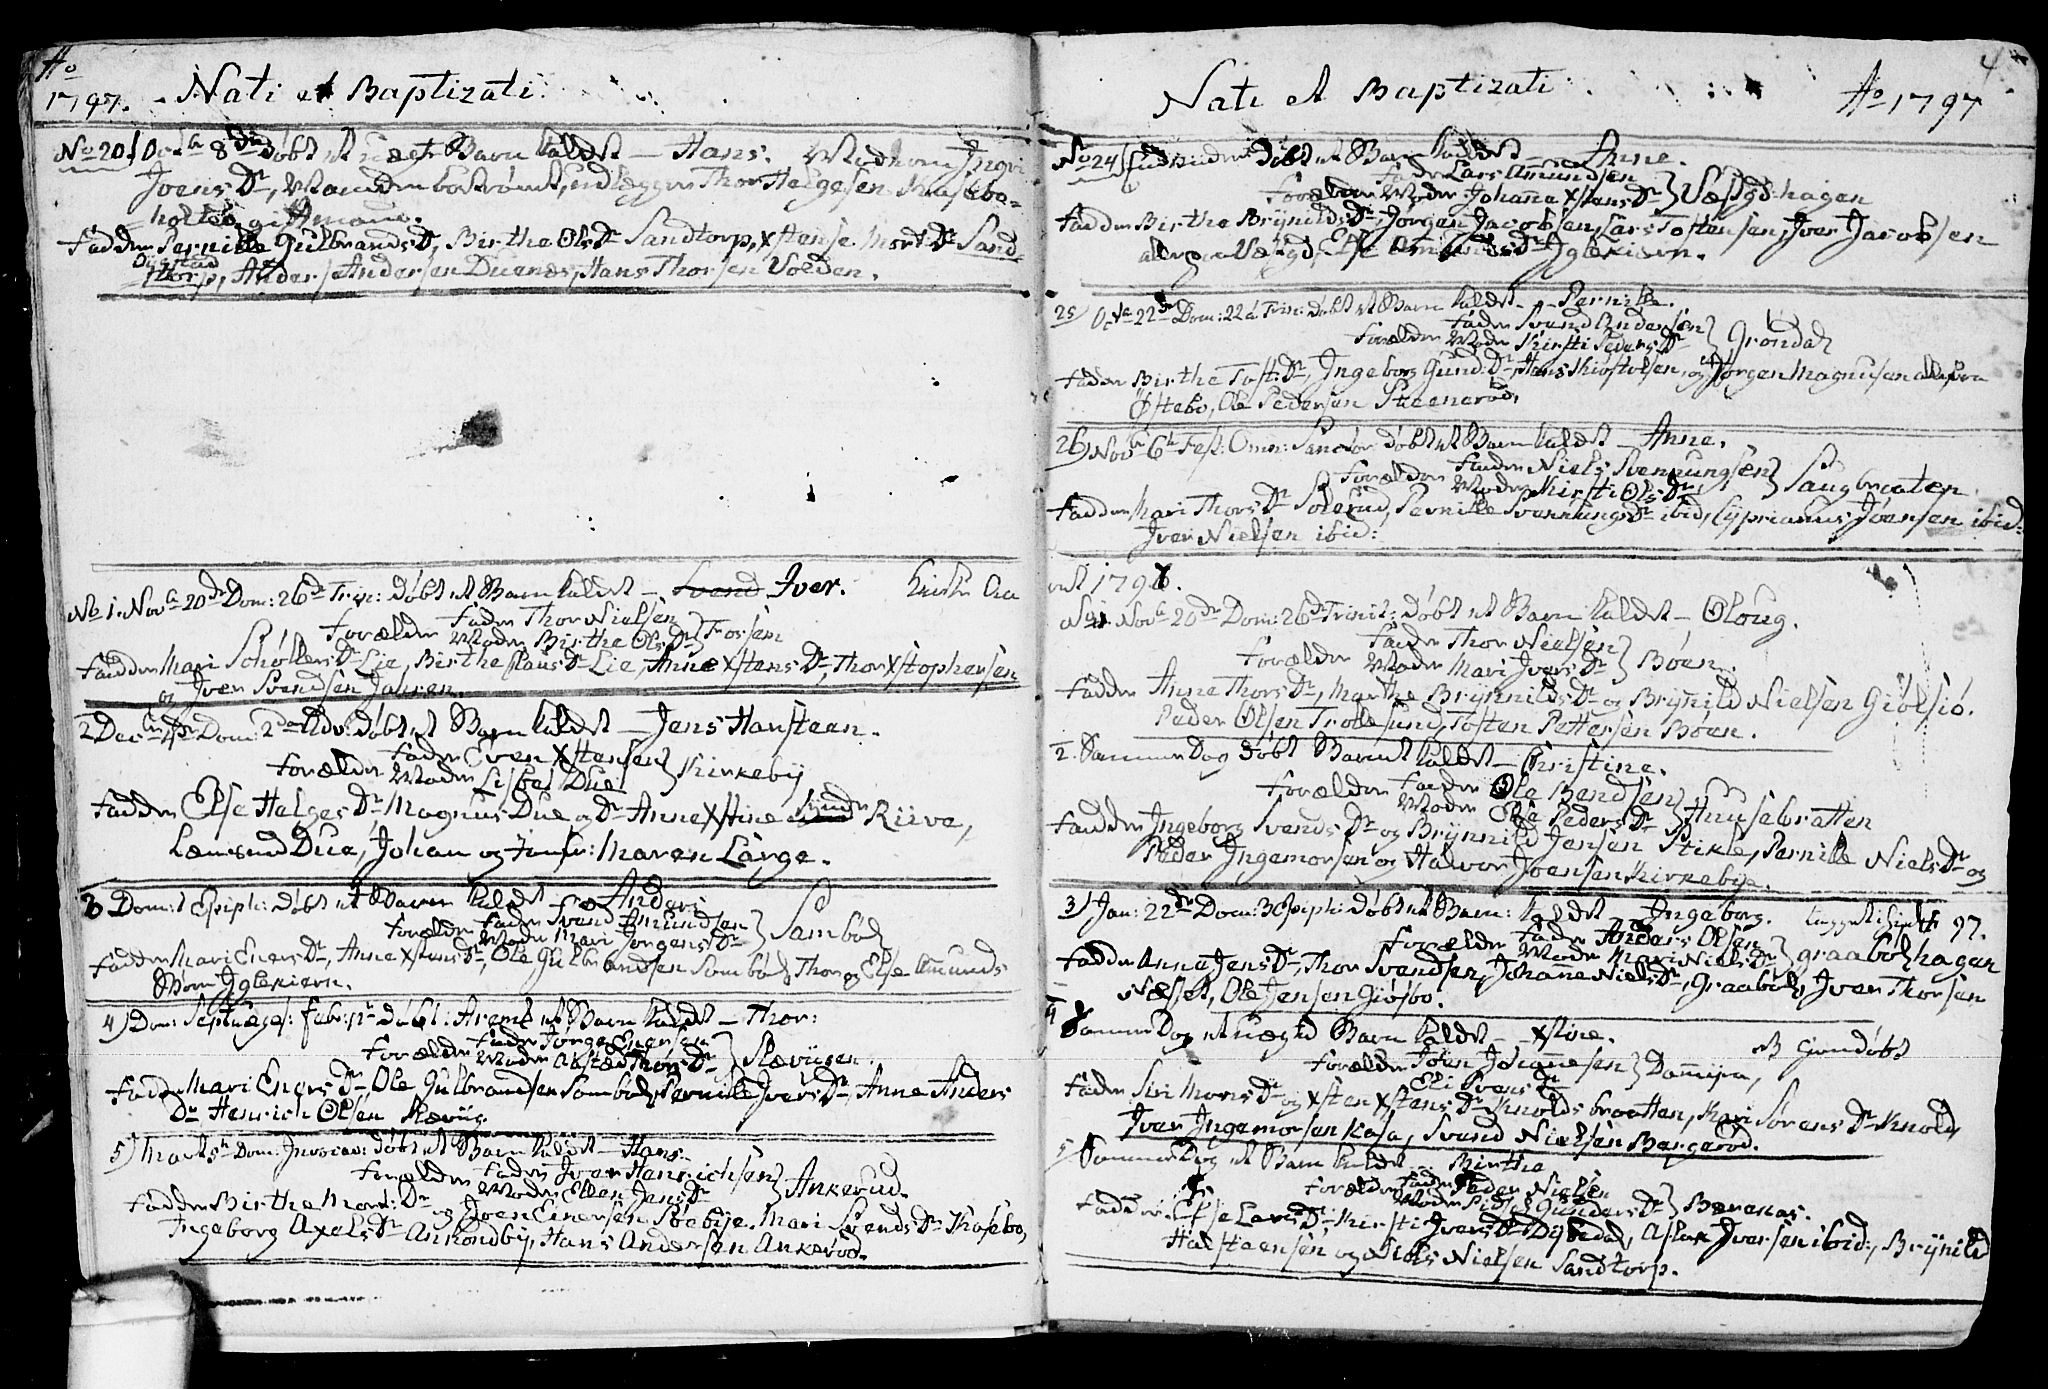 Ao
1797. Nati et Baptizati.
No 20/ Octbr 8de døbt et uægte Barn kaldet – Hans. Moderen Ingri
Joens Dr, Manden Thor Helgesen Kasebo-
holte gift Mand.
Fadder Pernille Gulbrands Dr, Birthe Ols Dr Sandtorp, Xstense Mort: Dr Sand-
thorp, Anders Andersen Duenæs, Hans Thorsen Volden.
No 1. Novbr 20de Dom: 26 p Trin: døbt et Barn kaldet – Svend Iver. Kirke Aaa
Forælder Fader Thor Nielsen
Moder Birthe Ols Dr } Fossen
Fadder Mari Schøllers Dr Lie, Birthe Claus Dr Lie, Anne Xstens Dr, Thor Xstophersen
og Iver Svendsen Jahren.
2 Decbr 4de Dom: 2da Adv: døbt et Barn kaldet – Jens Hansteen.
Forælder Fader Even Xstensen
Moder Lisbet Due } Kirkebij
Fadder Else Helges Dr Magnus Due og Dr Anne Xstine Riive,
Due, Johan og Jomfr: Maren Lange.
3 Dom: 1 Epiph: døbt et Barn kaldet – Anders
Forælder Fader Svend Amundsen
Moder Mari Jørgens Dr } Sambøl
Fadder Mari Eners Dr, Anne Xstens Dr, Ole Gulbrandsen Sombøl, Thor og Else Amunds
Børn Iglekiern.
4) Dom: Septuages: Febr: døbt: Arent et Barn kaldet – Thor:
Forælder Fader Jørge Enersen
Moder Thors Dr } Klæviisen.
Fadder Mari Eners Dr Ole Gulbrandsen Sambøl, Pernille Ivers Dr, Anne Anders
Dr Henrich Olsen Klæviis
5) Marts Dom: Invocav: døbt et Barn kaldet – Hans.
Forælder Fader Iver Henrichsen
Moder Ellen Jens Dr } Ankerud.
Fadder Birthe Mort: Dr og Joen Einersen Søebye, Mari Svends Dr Kasebo,
Ingeborg Axels Dr Ankondbij, Hans Andersen Ankerød.
4
Nati et Baptizati Ao 1797
No 24/ døbt et Barn kaldet – Anne.
Fader Lars Amundsen
Forælder Moder Johanne Xstens Dr } Væsgdhagen
Fadder Birthe Brijnilds Dr Jorgen Jacobsen, Lars Tostensen, Iver Jacobsen
alle paa Væsgd, Else Amunds Dr Iglekiern.
25/ Octbr 22de Dom: 22 a Trin: døbt et Barn kaldet – Pernille.
Fader Svend Andersen
Forælder Moder Kirsti Peders Dr } Grøndal
Fadder Birthe Tost: Dr, Ingeborg Gund: Dr, Hans Kiøstolsen, og Jørgen Magnusen alle fra
Østebo, Ole Pedersen Steenerød.
26/ Novbr 6te Fest: Omn: Sanctor døbt et Barn kaldet – Anne.
Forælder Fader Niels Svennungsen
Moder Kirsti Ols Dr } Saugbraaten
Fadder Mari Thors Dr Solerud, Pernille Svennungs Dr ibid, Cyprianus Joensen ibid:
Iver Nielsen ibid:
1797.
No 1. Novbr 20de Dom: 26 Trinit: døbt et Barn kaldet – Oloug.
Forælder Fader Thor Nielsen
Moder Mari Ivers Dr } Böen.
Fadder Anne Thors Dr, Marthe Brijnnilds Dr og Brijnild Nielsen Giølsiø.
Peder Olsen Trollesund, Tosten Pettersen Bøen.
2. Samme Dag døbt Barnet kaldet – Christine.
Forælder Fader Ole Bendsen
Moder Else Peders Dr } Huusebratten
Fadder Ingeborg Svends Dr og Brijnnild Jensen Stikle, Pernille Niels Dr og
Peder Ingemorsen og Halvor Joensen Kirkebije.
3/ Jan: 22de Dom: 3 Epiph: døbt et Barn: kaldet – Ingeborg. 97.
Forælder Fader Anders Olsen
Moder Mari Niels Dr } Graabølhagen
Fadder Anne Jens Dr, Thor Svendsen, Johane Niels Dr, Graabøl, Iver Thorsen
Næsset, Ole Jensen Giøsbo.
4 Samme Dag et uægte Barn kaldet – Xstine. Giendøbt
Forælder John Johannesen
Eli Svens Dr } Damijra,
Fadder Siri Mons Dr og Xsten Xstens Dr Knoldsbraatten, Kari Sørens Dr Knold
Iver Ingemorsen Kasa, Svend Nielsen Bergerød.
5/ Samme Dag et Barn kaldet – Birthe
Forælder Fader Peder Nielsen
Moder Gunders Dr } Bærenæs.
Fadder Else Lars Dr Kirsti Ivers Dr Dijbedal, Aslak Iversen ibid:, Brijnild
Halsteensen og Niels Nielsen Sandtorp.